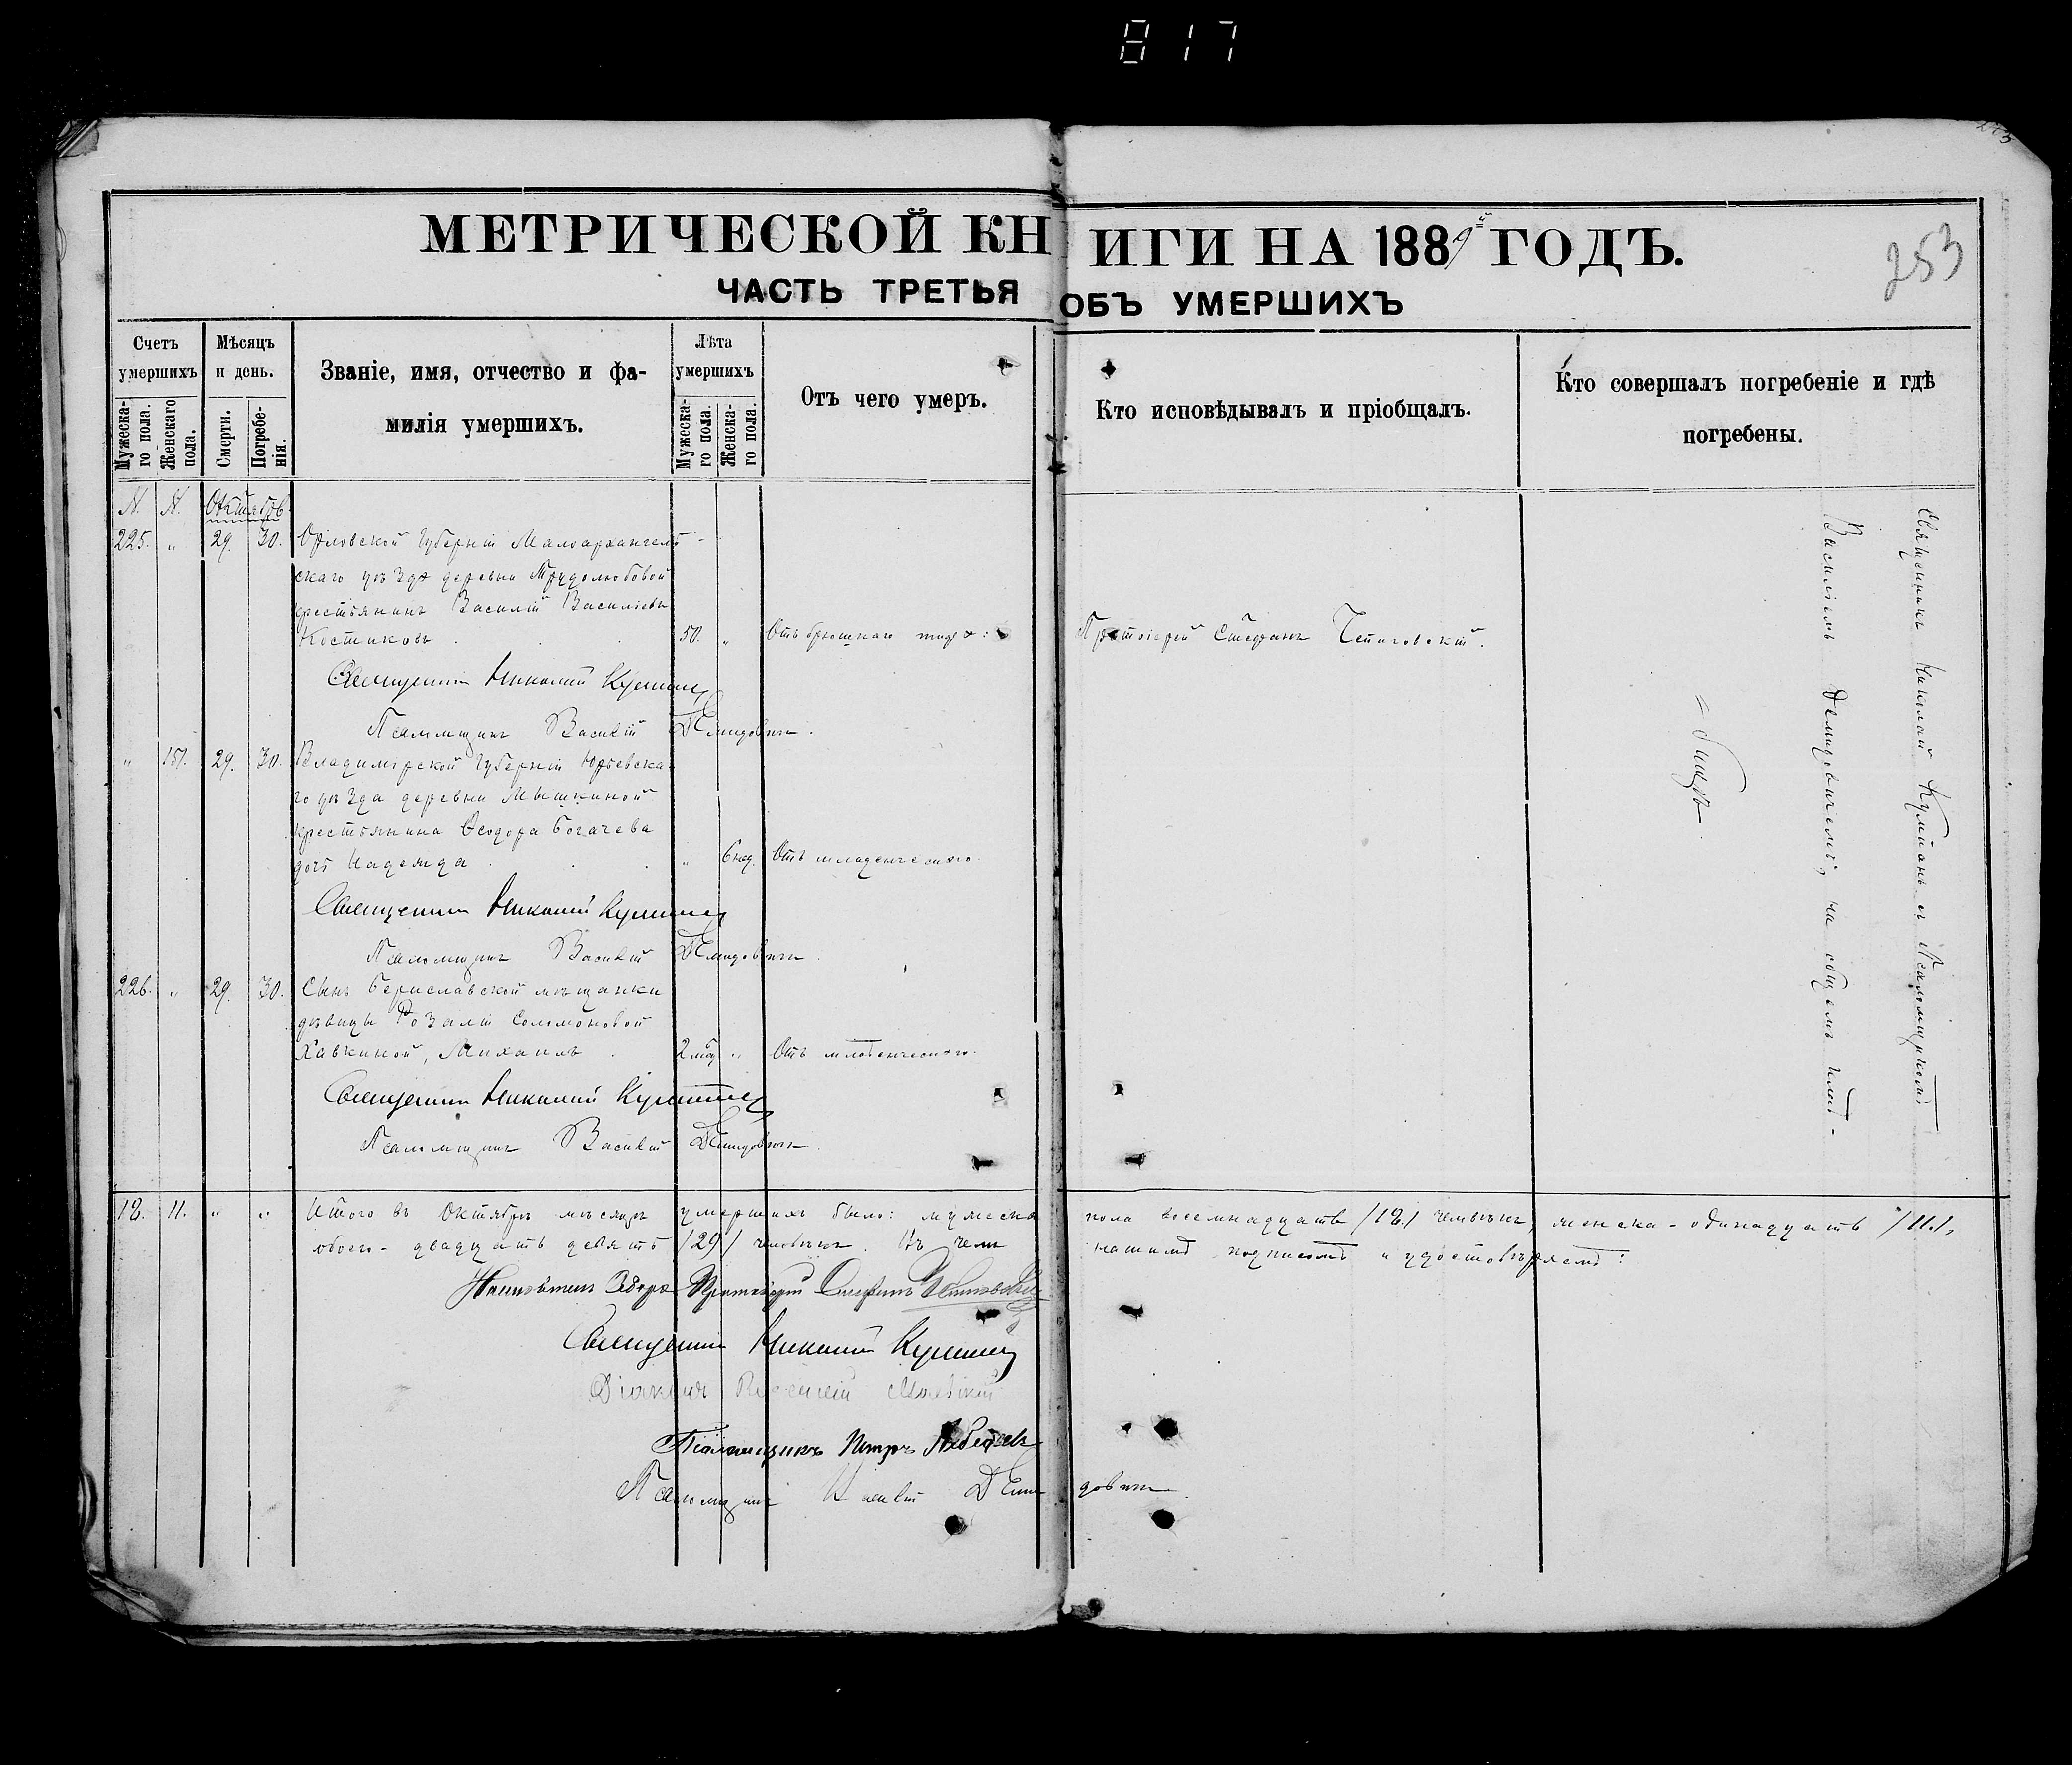 817
МЕТРИЧЕСКОЙ КНИГИ НА 1889й ГОДЪ.
253
ЧАСТЬ ТРЕТЬЯ ОБЪ УМЕРШИХЪ
Счетъ умершихъ
Мужеска-го пола.
Женскаго пола.
Мѣсяцъ и день.
Смерти.
Погребе-нія.
Званіе, имя, отчество и фа-
милія умершихъ.
Лѣта умершихъ
Мужеска-го пола.
Женска-го пола.
Отъ чего умеръ.
Кто исповѣдывалъ и пріобщалъ.
Кто совершалъ погребеніе и гдѣ
погребены.
N. N. Октябрь
225. „ 29. 30. Орловской Губерніи Малоархангель-
скаго уѣзда деревни Трудолюбовой
крестьянинъ Василій Васильевъ
Костиковъ. 50. „ Отъ брюшнаго тифа: Протоіерей Стефанъ
Священникъ Николай
Псаломщикъ Василій Демидовичъ.
„ 151. 29. 30. Владимірской Губерніи Юрьевска-
го уѣзда деревни Мышкиной
крестьянина Ѳеодора Богачева
дочь Надежда. „ 6 нед. Отъ младенческаго.
Священникъ Николай
Псаломщикъ Василій Демидовичъ.
226. „ 29. 30. Сынъ Бериславской мѣщанки
дѣвицы Розаліи Соломоновой
Хавкиной, Михаилъ. 2 „ Отъ младенческаго.
Священникъ Николай
Псаломщикъ Василій Демидовичъ.
Священникъ Николай и Псаломщикомъ
Василіемъ Демидовичемъ, на общемъ клад-
бищѣ.
18. 11. „ „ Итого въ Октябрѣ мѣсяцѣ умершихъ было: мужеска пола восемнадцать /18./ человѣкъ, женска - одинадцать /11./,
обоего - двадцать девять /29/ человѣкъ. Въ чемъ нашимъ подписомъ и удостовѣряемъ:
Настоятель Собора Протоіерей Стефанъ
Священникъ Николай
Діаконъ
Псаломщикъ Петръ
Псаломщикъ Василій Демидовичъ